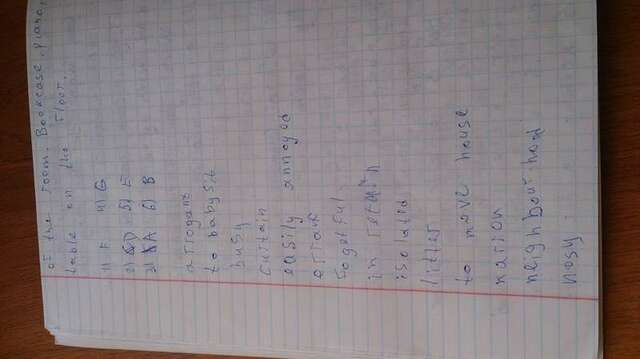 of the room. Bookcase, piano,
table on the floor.
1) F 4) G
2) D 5) E
3) A 6) B
arrogant
to babysit
busy
curtain
easily annoyed
forgetful
in return
isolated
litter
to move house
nation
neighbourhood
nosy